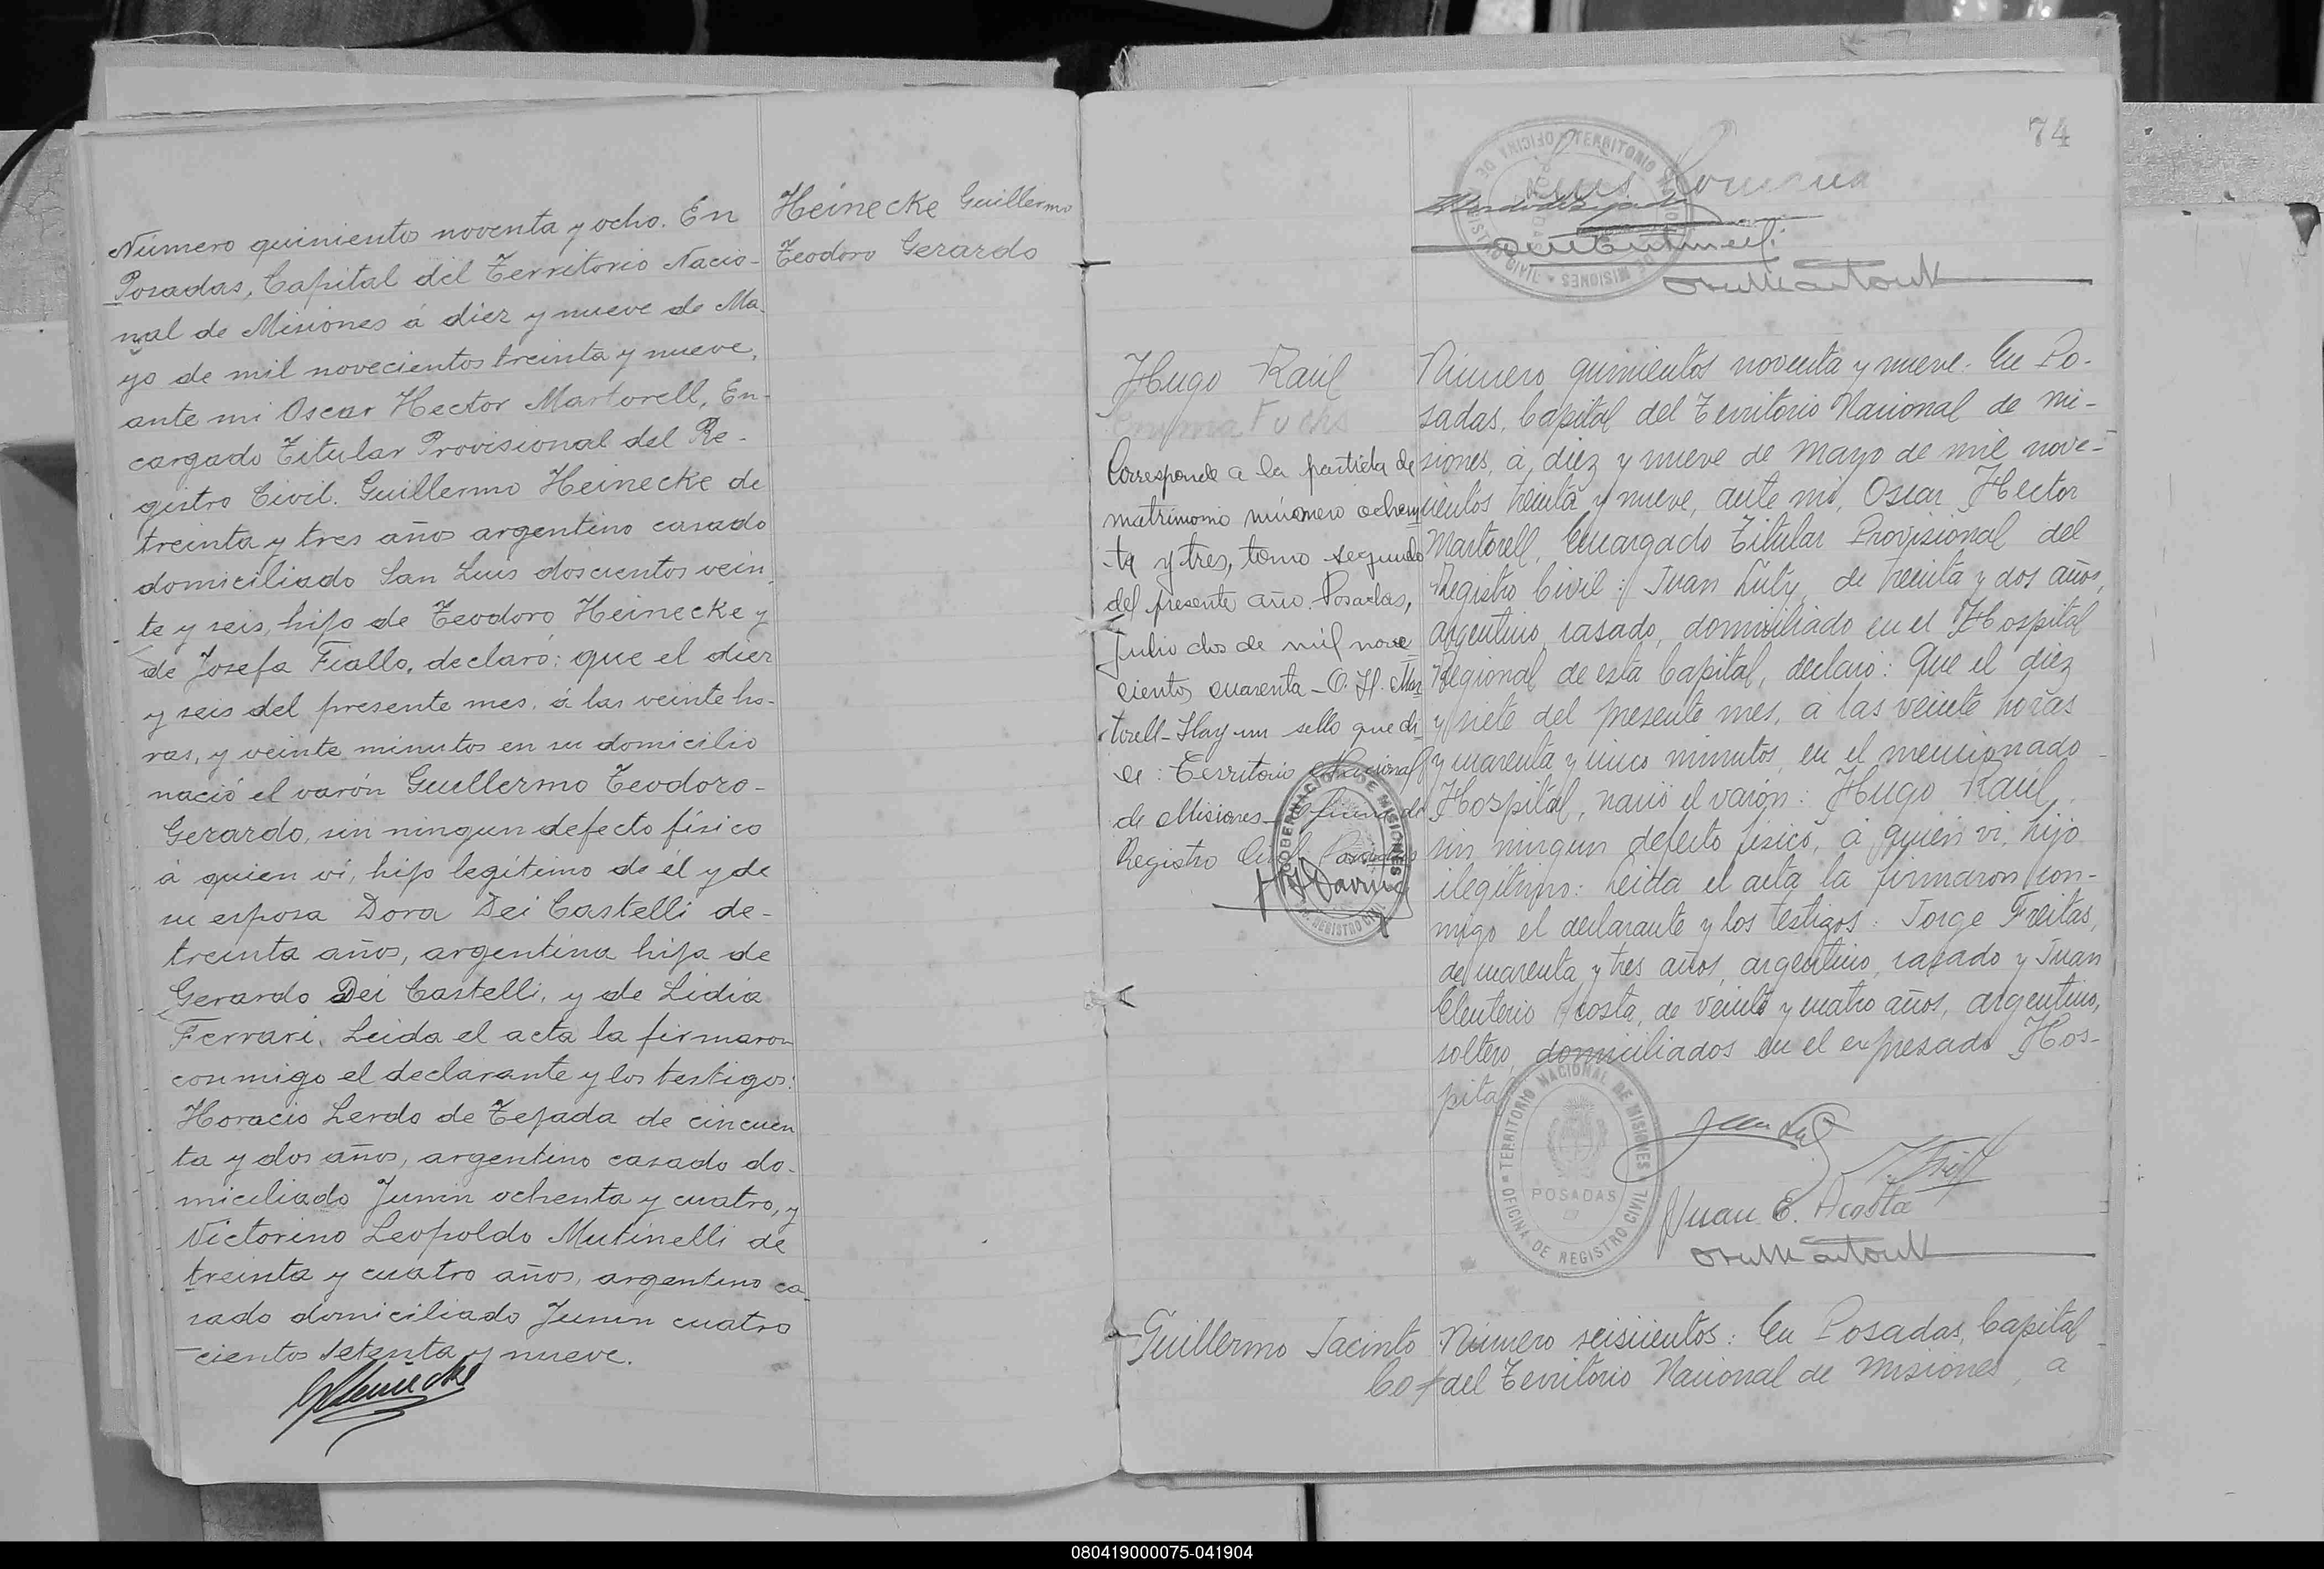 Número quinientos noventa y ocho. En
Posadas, Capital del Territorio Nacio-
nal de Misiones á diez y nueve de Ma-
yo de mil novecientos treinta y nueve,
ante mi Oscar Hector Martorell, En-
cargado Titular Provisional del Re-
gistro Civil. Guillermo Heinecke de
treinta y tres años argentino casado
domiciliado San Luis doscientos vein-
te y seis, hijo de Teodoro Heinecke y
de Josefa Fiallo, declaró: que el diez
y seis del presente mes, á las veinte ho-
ras, y veinte minutos en su domicilio
nació el varón Guillermo Teodoro-
Gerardo, sin ningun defecto físico
á quien ví, hijo legítimo de él y de
su esposa Dora Dei Castelli de-
treinta años, argentina hija de
Gerardo Dei Castelli, y de Lidia
Ferrari. Leida el acta la firmaron
conmigo el declarante y los testigos:
Horacio Lerdo de Tejada de cincuen
ta y dos años, argentino casado do-
miciliado Junin ochenta y cuatro, y
Victorino Leopoldo Mutinelli de
treinta y cuatro años, argentino ca-
sado domiciliado Junin cuatro
cientos setenta y nueve.
GHeinecke
Heinecke Guillermo
Teodoro Gerardo
74
TERRITORIO NACIONAL DE MISIONES
OFICINA DE REGISTRO CIVIL
Hugo Raúl
Emma Fuchs
Corresponde a la partida de
matrimonio número ochen
ta y tres, tomo segundo
del presente año. Posadas,
Julio dos de mil nove
cientos cuarenta - O. H. Mar
torell - Hay un sello que di
ce: Territorio Nacional
de Misiones - Oficina de
Registro Civil Posadas
GOBERNACION DE MISIONES
REGISTRO CIVIL
Número quinientos noventa y nueve. En Po-
sadas, Capital del Territorio Nacional de Mi-
siones, á diez y nueve de Mayo de mil nove-
cientos treinta y nueve, ante mi, Oscar Hector
Martorell, Encargado Titular Provisional del
Registro Civil: Juan Luty, de treinta y dos años,
argentino, casado, domiciliado en el Hospital
Regional de esta Capital, declaró: Que el diez
y siete del presente mes, a las veinte horas
y cuarenta y cinco minutos, en el mencionado
Hospital, nació el varón: Hugo Raúl,
sin ningun defecto físico, á quien vi, hijo
ilegitimo: Leida el acta la firmaron con-
migo el declarante y los testigos: Jorge Freitas,
de cuarenta y tres años, argentino, casado y Juan
Eleuterio Acosta, de veinte y cuatro años, argentino,
soltero, domiciliados en el expresado Hos-
pital
TERRITORIO NACIONAL DE MISIONES
POSADAS
OFICINA DE REGISTRO CIVIL
Juan E. Acosta
Guillermo Jacinto
Número seiscientos: En Posadas, Capital
del Territorio Nacional de Misiones, a
080419000075-041904